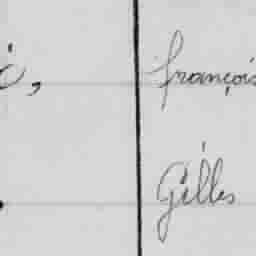 é, françois
Gilles